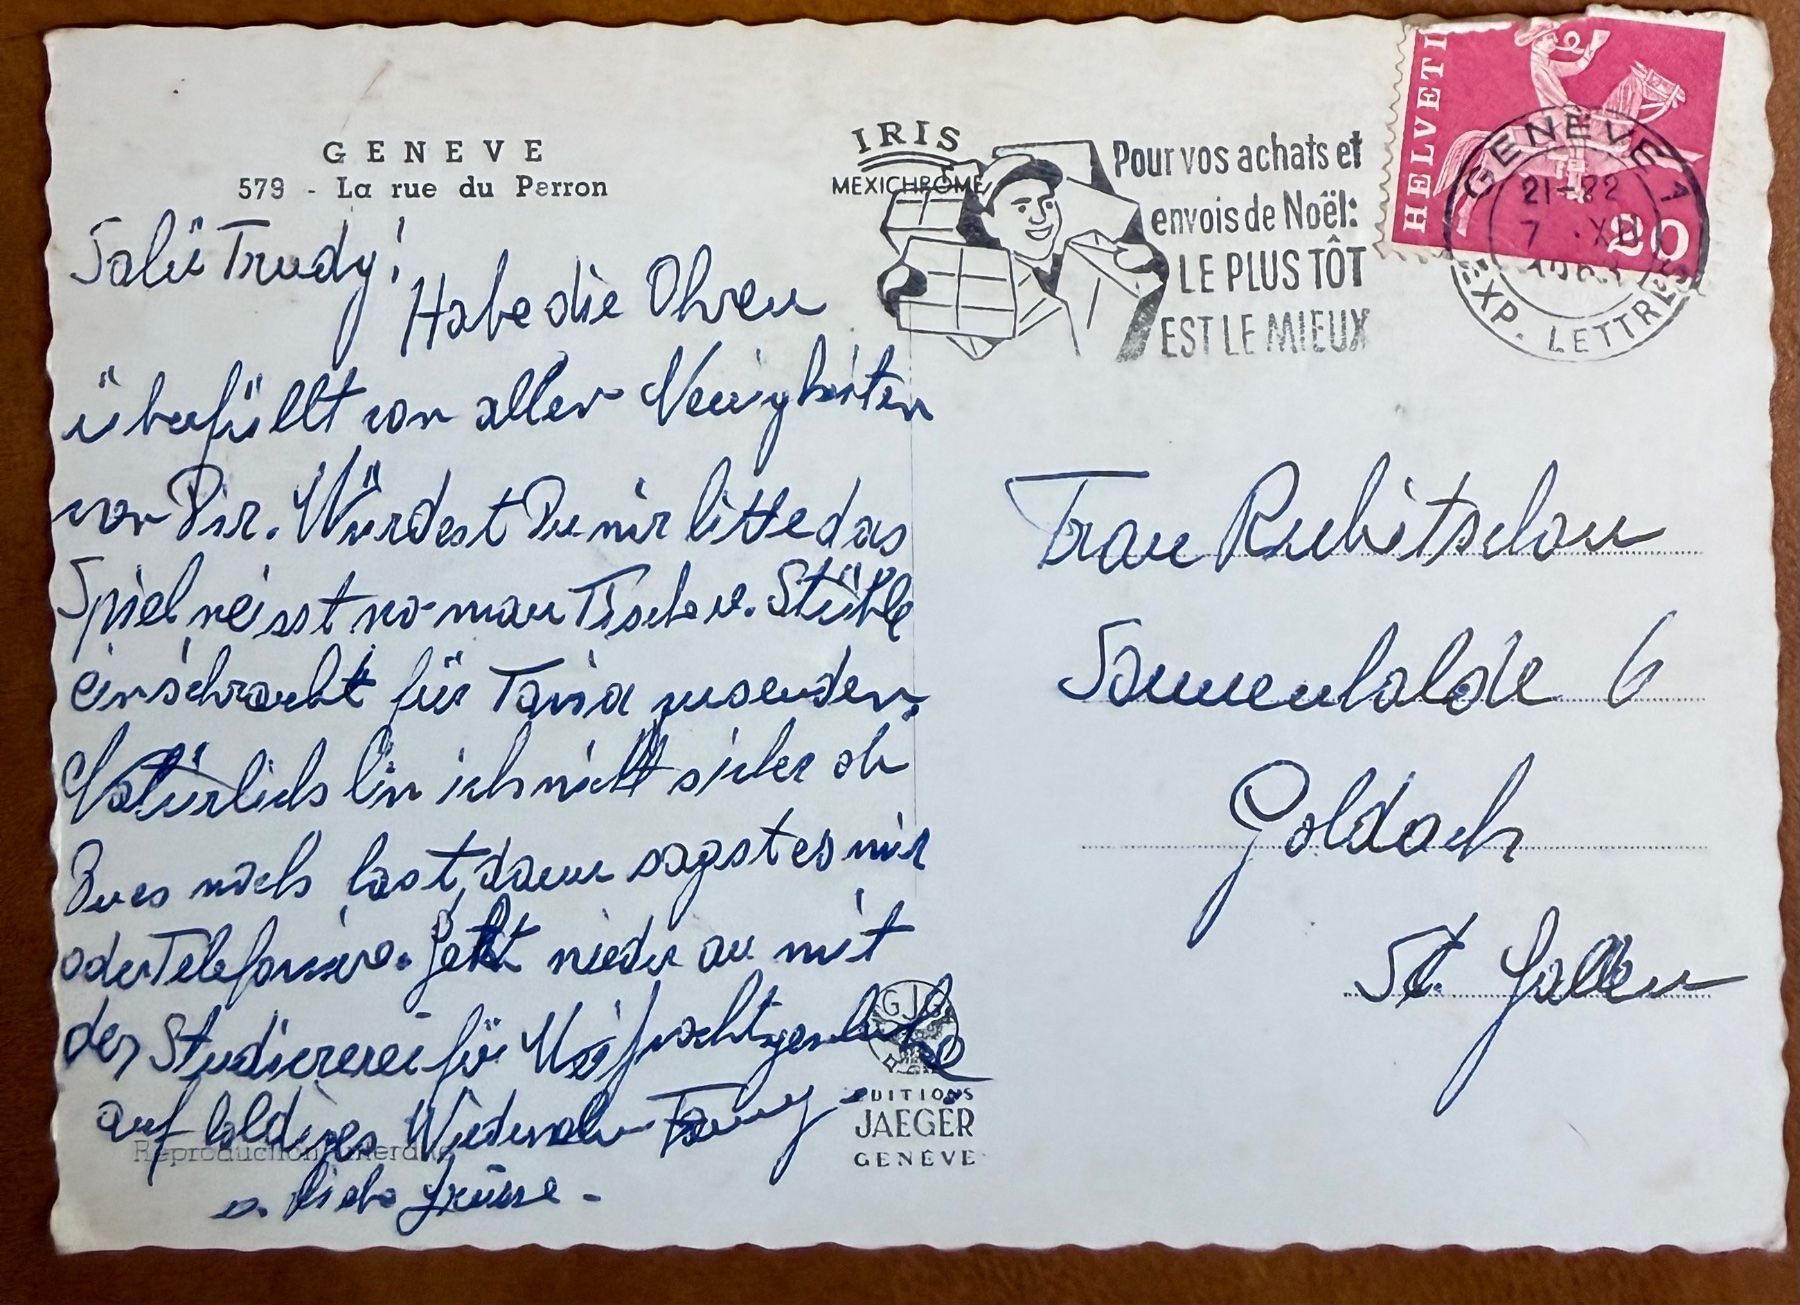 GENEVE
579 - La rue du Perron
IRIS
MEXICHROME
Pour vos achats et
envois de Noël:
LE PLUS TÔT
EST LE MIEUX
HELVETI
20
GENÈVE 1
21-22
7 XII
EXP. LETTRES
Salü Trudy!
Habe die Ohren
überfüllt von allen Neuigkeiten
von Dir. Würdest Du mir bitte das
Spiel weisst wo man Tisch u. Stühle
einschraubt für Tania zusenden.
Natürlich bin ich nicht sicher ob
Du es noch hast, dann sagst es mir
oder Telefoniere. Jetzt wieder an mit
der Studiererei für
auf baldiges Wiedersehn Fanny
u. liebe Grüsse -
Frau Rubitschon
Sonnenhalde 6
Goldach
St. Gallen
GJG
EDITIONS
JAEGER
GENÈVE
Reproduction interdite